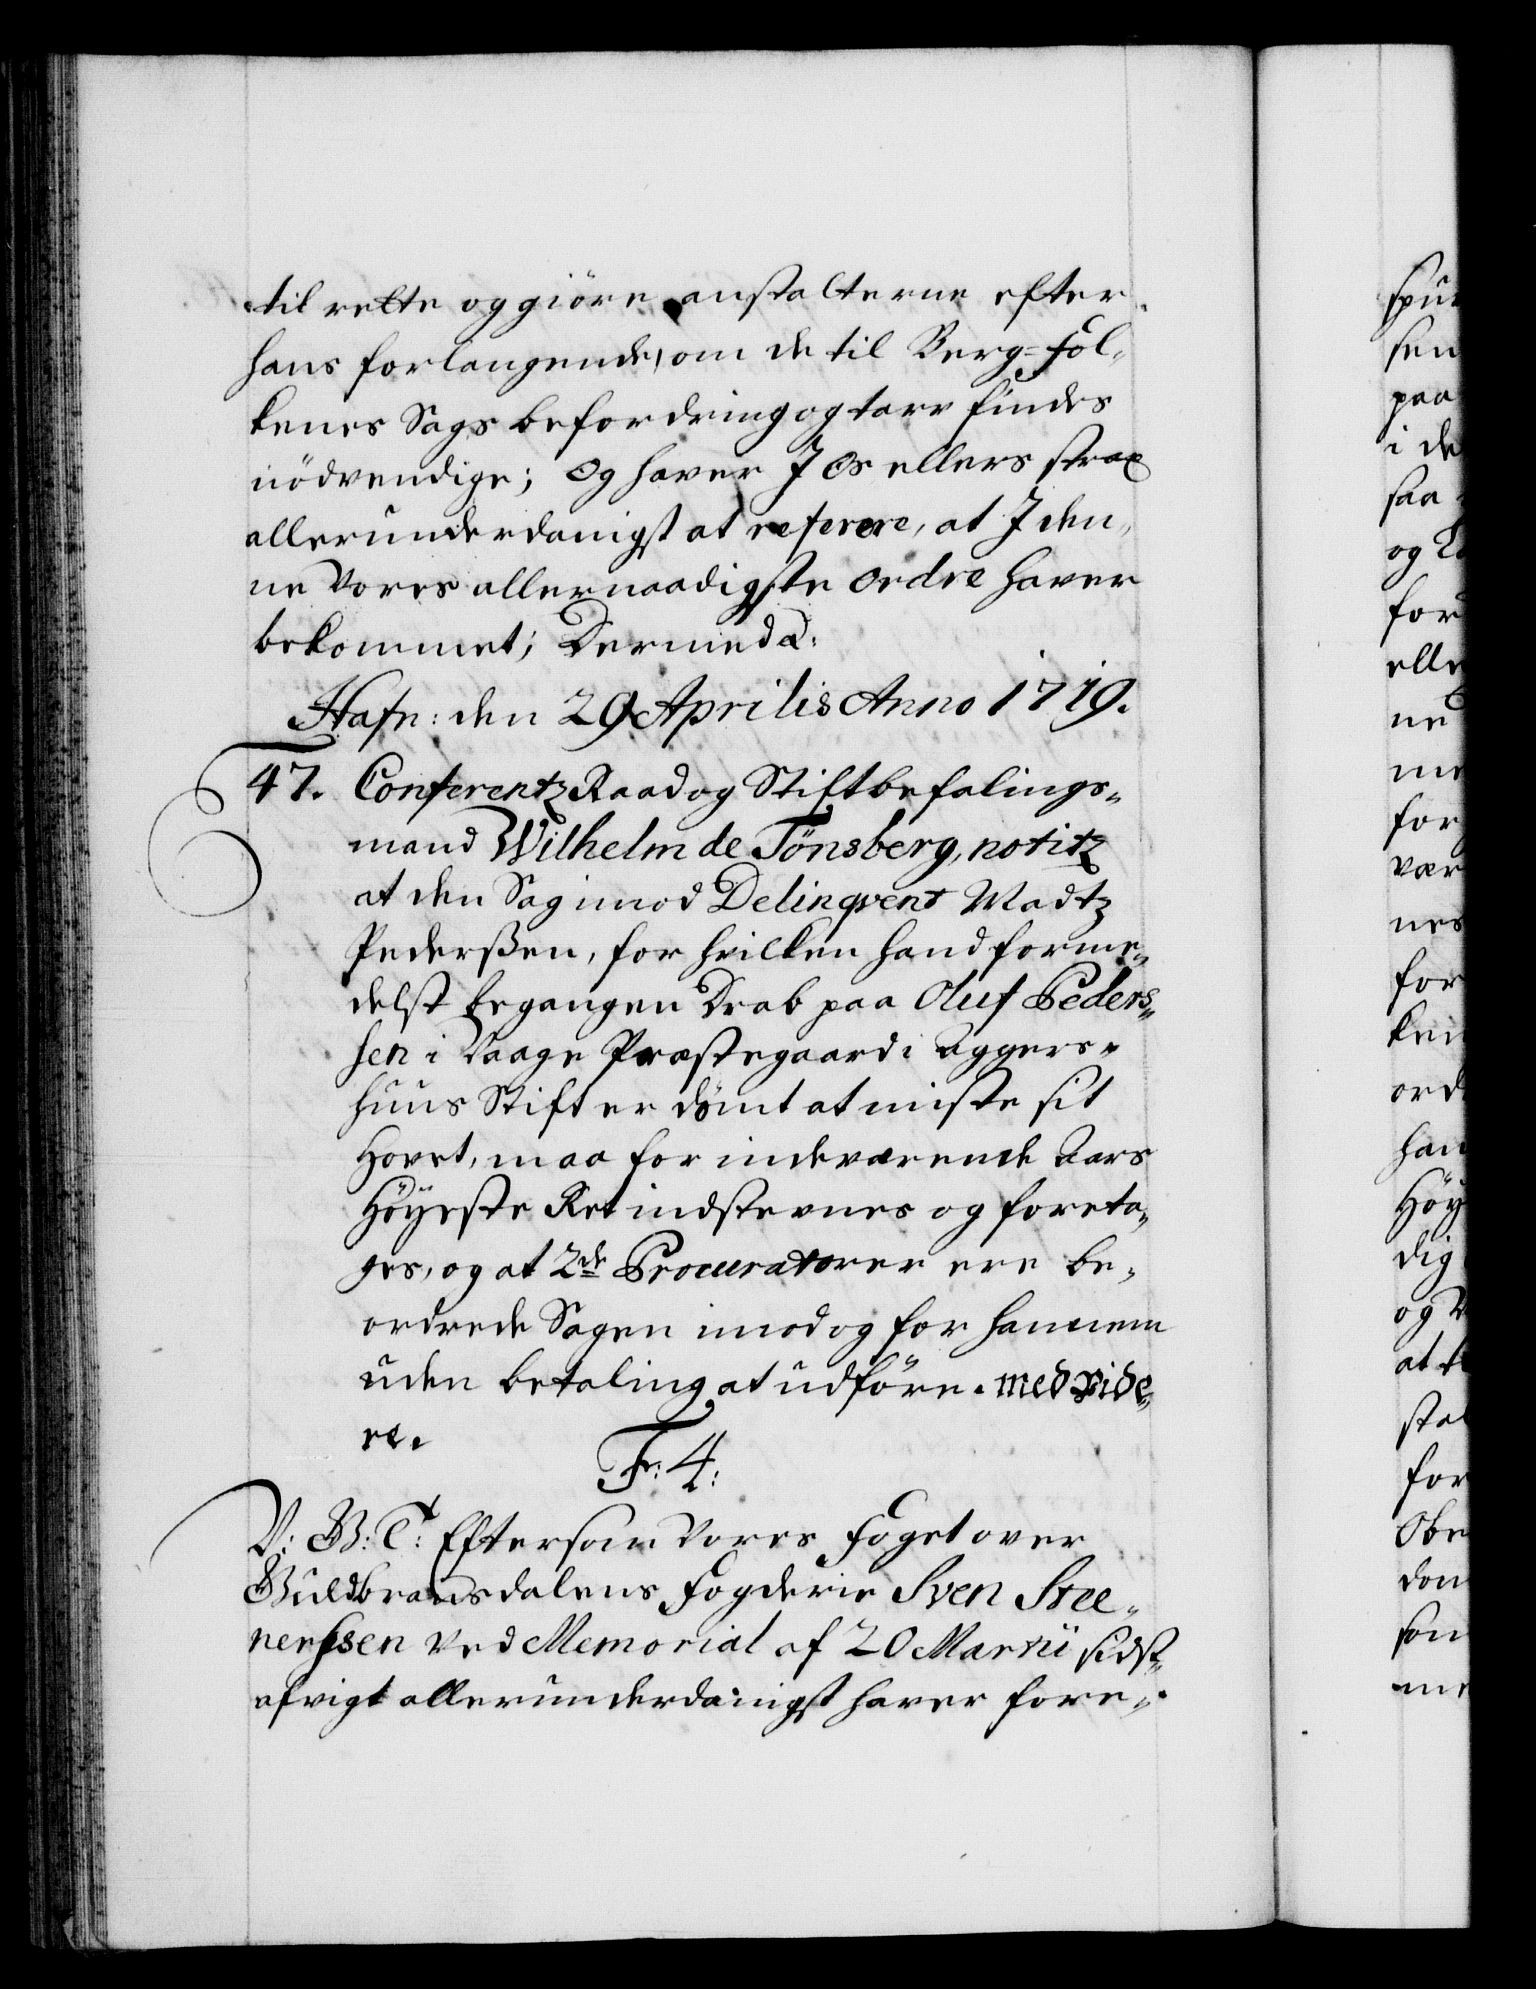 til rette og giöre anstalterne efter
hans forlangende, om de til Berg-Fol-
kenes Sags befordring og tarv findes
nödvendige; Og haver I Os ellers strax
allerunderdanigst at referere, at I den-
ne Vores allernaadigste Ordre haver
bekommet; Dermed &:
Hafn: den 29 Aprilis Anno 1719.
47. Conferentz Raad og Stiftbefalings-
mand Wilhelm de Tönsberg, notitz
at den Sag imod Delinqvent Madtz
Pederssen, for hvilken hand forme-
delst begangen Drab paa Oluf Peders-
sen i Vaage Præstegaard i Aggers-
huus Stift er dömt at miste sit
Hovet, maa for indeværende Aars
Höyeste Ret indstevnes og foreta-
ges, og at 2de Procuratorer ere be-
ordrede Sagen imod og for hannem
uden betaling at udföre. med vide-
re.
Fr: 4:
V: G: T: Eftersom Vores Foget over
Guldbrandsdalens Fogderie Sven Stee-
nerssen ved Memorial af 20 Martii sidst-
afvigt allerunderdanigst haver fore-
spu
sen
paa
i de
saa
og
for
elle
ne
me
for
vær
nes
for
ken
ord
han
Höy
dig
og
at
sta
for
Obe
don
som
me